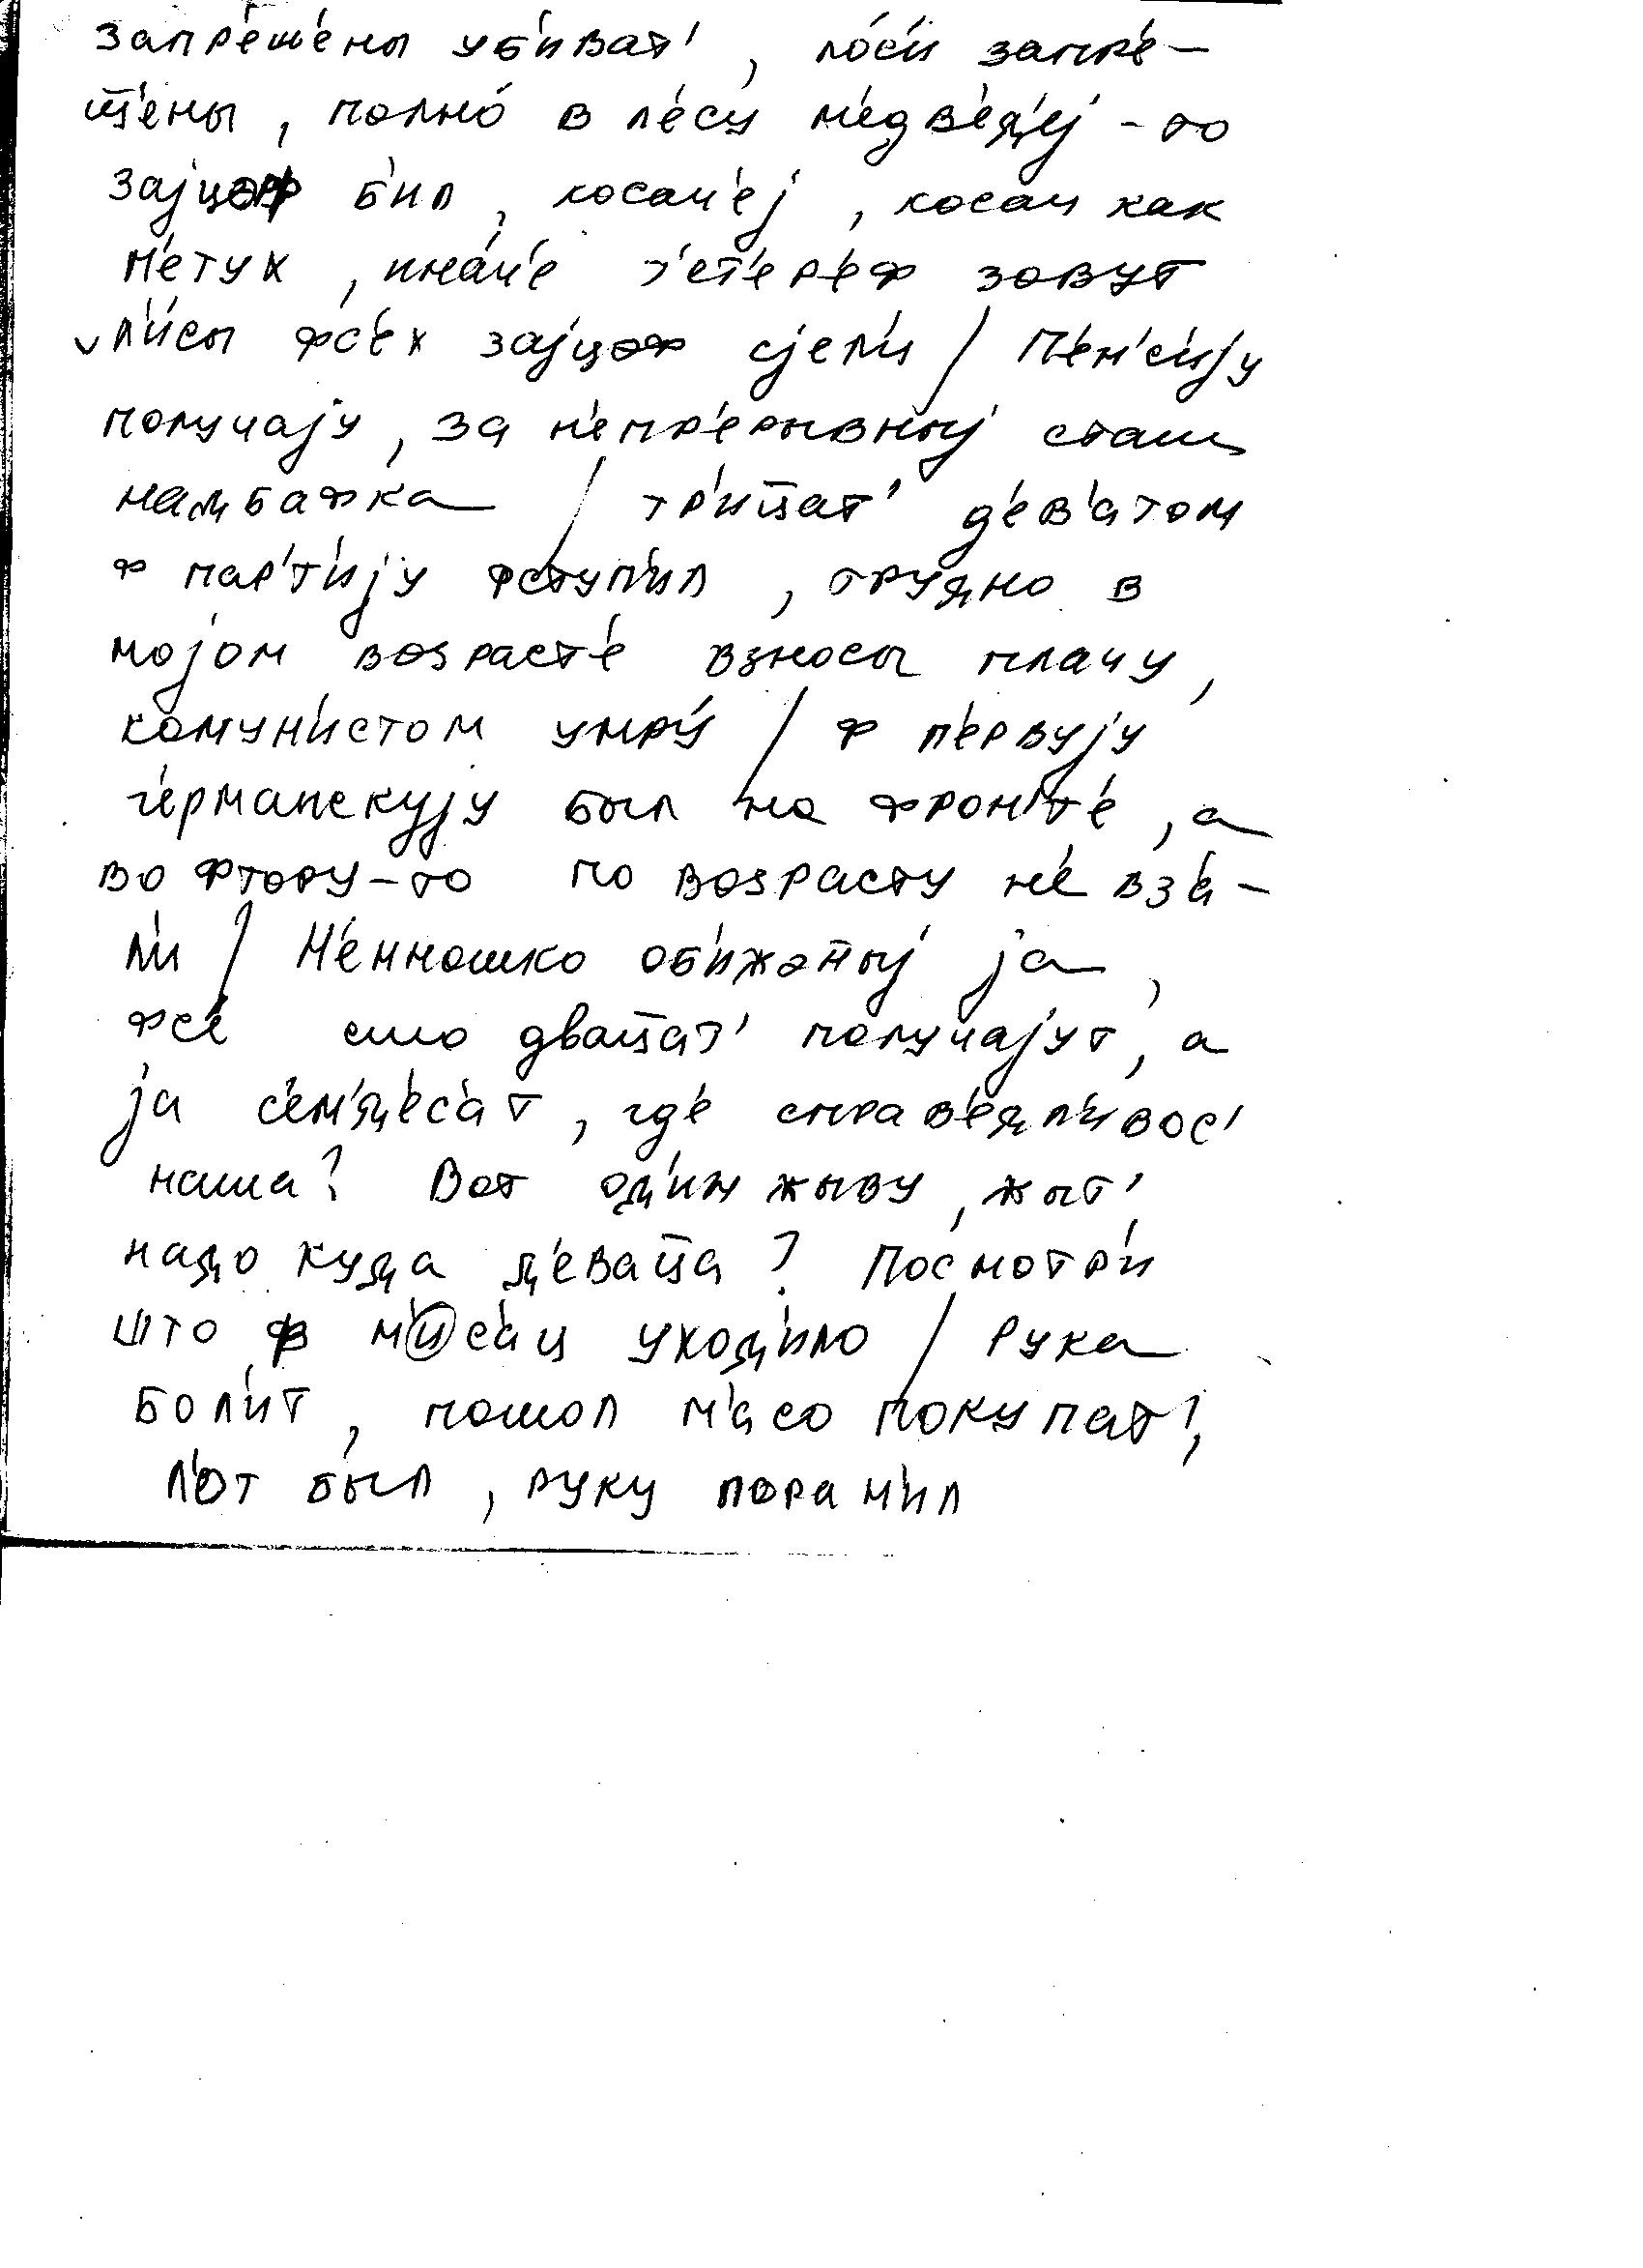 запр'еш'ены уб'иват', лос'и запр'е-
щ'ены, полно в л'есу м'едв'ед'еј-то
зајцоф б'ил, косач'еј, косач как
п'етух, инач'е т'ет'ер'еф зовут
л'исы фс'ех зајцоф сјел'и / П'ен'с'ију
получају, за н'епр'ерывныј сташ
надбафка / тр'ицат' д'ев'атом
ф парт'ију фступ'ил, трудно в
мојом возраст'е взносы плачу,
комун'истом умру / ф п'ервују
г'ерманскују был на фронт'е, а
во фтору-то по возрасту н'е вз'а-
л'и / Н'емношко об'ижаныј ја,
фс'е сто двацат' получајут, а
ја с'ем'д'ес'ат, гд'е справ'едл'ивос'
наша? Вот од'ин жыву, жыт'
надо куда д'еваца? Посмотр'и
што ф м'ис'ац уход'ило / Рука
бол'ит, пошол м'асо покупат',
л'от был, руку поран'ил